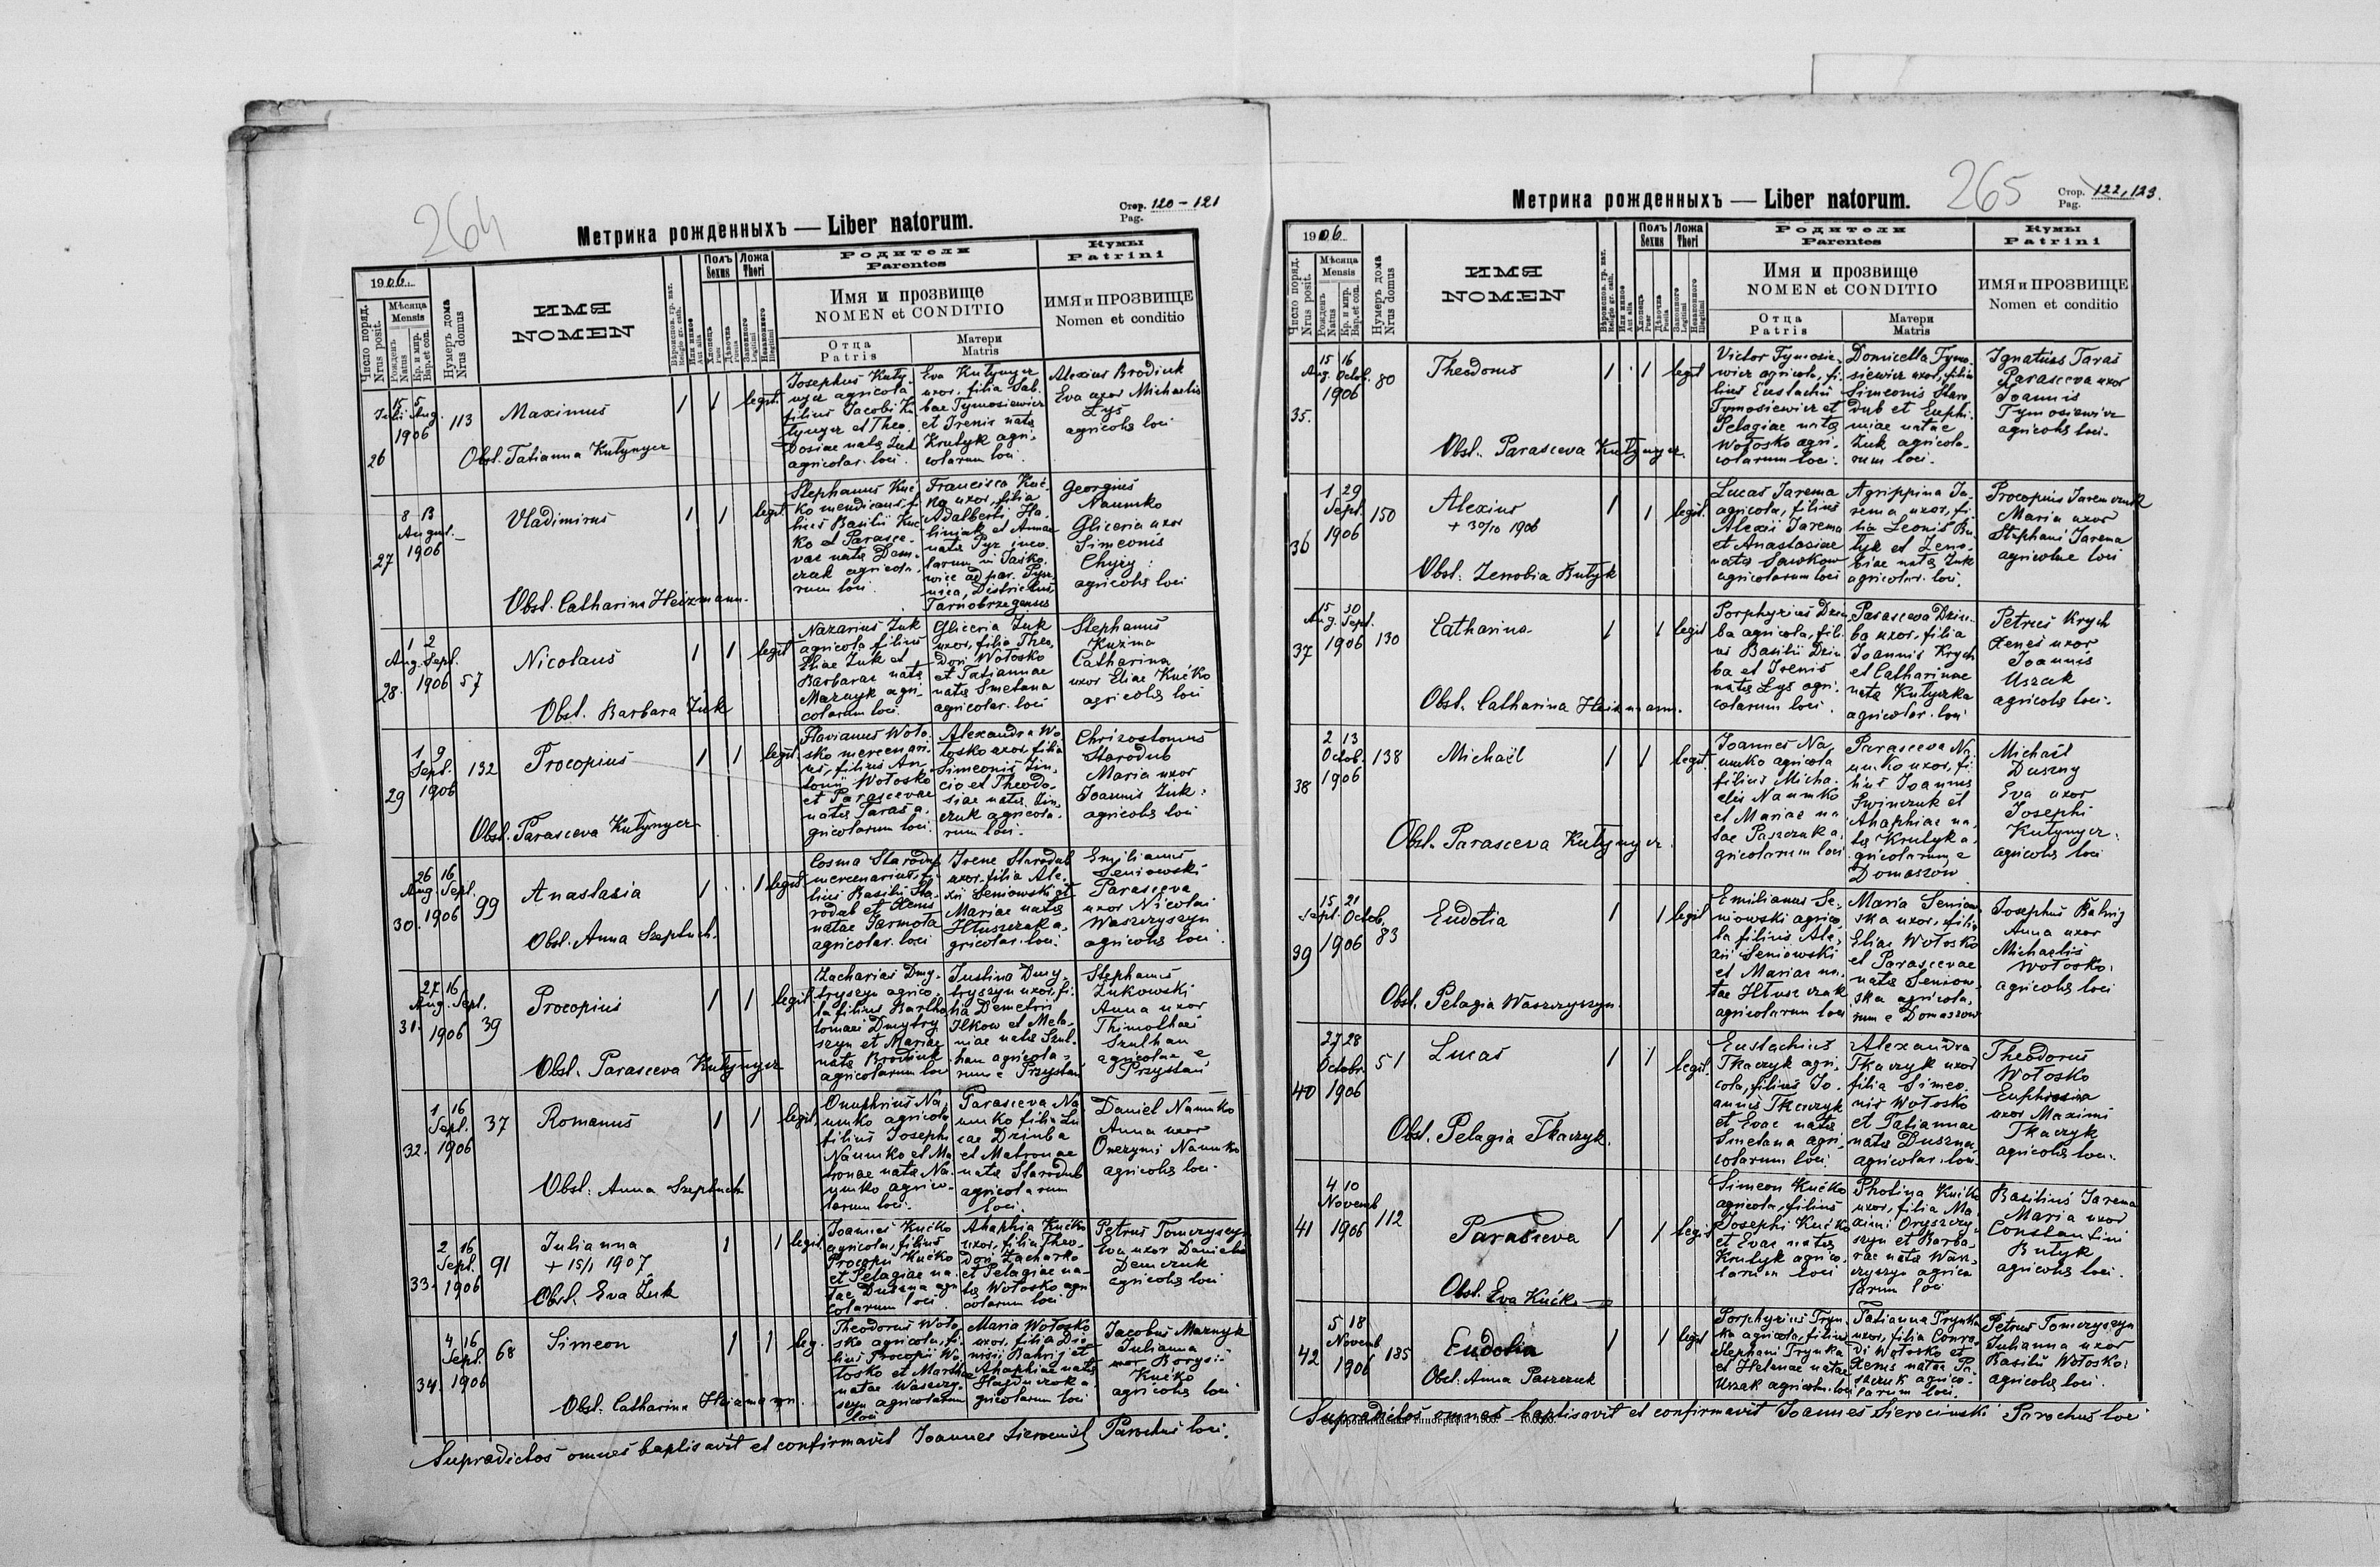 264
Метрика рожденныхъ — Liber natorum.
Стор. 120-121
Pag.
1906
Число поряд.
Nrus posit.
Мѣсяца
Mensis
Рожденъ
Natus
Кр. и мир.
Bap. et con.
Нумеръ дома
Nrus domus
ИМЯ
NOMEN
Вѣроиспов. гр. кат.
Religio gr. cath.
Или иное
Aut alia
Полъ
Sexus
Хлопець
Puer
Дѣвочка
Puella
Ложа
Thori
Законного
Legitimi
Незаконного
Illegitimi
Родители
Parentes
Имя и прозвище
NOMEN et CONDITIO
Отца
Patris
Матери
Matris
Кумы
Patrini
ИМЯ и ПРОЗВИЩЕ
Nomen et conditio
26
15 5
Julii Aug.
1906
113
Maximus
Obst. Tatianna Kutynycz
1 1 legit.
Josephus Kuty-
nycz agricola
filius Jacobi Ku
tynycz et Theo.
dosiae natę Żuk
agricolar. loci.
Eva Kutynycz
uxor, filia Sab.
bae Tymosiewicz
et Irenis natę
Krutyk agri-
colarum loci.
Alexius Brodiuk
Eva uxor Michaelis
Łyś
agricolę loci
27
8 13
August.
1906
Vladimirus
Obst. Catharina Heizmann.
1 1 legit.
Stephanus Kuć
ko mendicans, fi
lius Basilii Kuć
ko et Parasce-
vae natę Dem-
czuk agricola-
rum loci.
Francisca Kuć-
ko uxor, filia
Adalberti Ha-
liniak et Annae
natę Pyz inco-
larum in Jaśko-
wice ad par. Pysz-
nica, Districtus
Tarnobrzegensis
Georgius
Naumko
Gliceria uxor
Simeonis
Chyry:
agricolę loci
28.
1 2
Aug. Sept.
1906
57
Nicolaus
Obst. Barbara Żuk
1 1 legit
Nazarius Żuk
agricola filius
Eliae Żuk et
Barbarae natę
Maznyk agri-
colarum loci.
Gliceria Żuk
uxor, filia Theo.
dori Wołosko
et Tatiannae
natę Smetana
agricolar. loci
Stephanus
Kuzma
Catharina
uxor Eliae Kućko
agricolę loci
29
1 9
Sept.
1906
132
Procopius
Obst. Parasceva Kutynycz
1 1 legit.
Flavianus Woło-
sko mercenari-
us, filius An-
tonii Wołosko
et Parascevae
natę Taraś a.
gricolarum loci
Alexandra Wo
łosko uxor, filia
Simeonis Zin-
cio et Theodo-
siae natę Zin-
czuk agricola-
rum loci.
Chrizostomus
Starodub
Maria uxor
Joannis Żuk:
agricolę loci
30.
26 16
Aug. Sept.
1906
99
Anastasia
Obst. Anna Szeptuch.
1 1 legit.
Cosma Starodub
mercenarius, fi-
lius Basilii Sta-
rodub et Xenis
natae Jarmoła
agricolar. loci
Irene Starodub
uxor, filia Ale-
xii Seniowski et
Mariae natę
Hłuszczak a.
gricolar. loci.
Emilianus
Seniowski
Parasceva
uxor Nicolai
Waszczyszyn
agricolę loci.
31.
27 16
Aug. Sept.
1906
39
Procopius
Obst. Parasceva Kutynycz
1 1 legit.
Zacharias Dmy-
tryszyn agrico-
la filius Bartho
lomaei Dmytry
szyn et Mariae
natę Brodiuk
agricolarum loci
Justina Dmy-
tryszyn uxor, fi-
lia Demetrii
Ilkow et Mela-
niae natę Szul-
han agricola-
rum e Przystań
Stephanus
Żukowski
Anna uxor
Thimothei
Szulhan
agricolae e
Przystań
32.
1 16
Sept.
1906
37
Romanus
Obst. Anna Szeptuch
1 1 legit.
Onuphrius Na.
umko agricola
filius Josephi
Naumko et Ma
tronae natę Na-
umko agrico-
larum loci.
Parasceva Na
umko filia Lu
cae Dziuba
et Matronae
natę Starodub
agricolarum
loci.
Daniel Naumko
Anna uxor
Onezymi Naumko
agricolę loci.
33.
2 16
Sept.
1906
91
Julianna
+ 15/1 1907
Obst. Eva Żuk
1 1 legit.
Joannes Kućko
agricola, filius
Procopii Kućko
et Pelagiae na-
tae Duszna agri
colarum loci.
Ahaphia Kućko
uxor, filia Theo-
dori Zacharko
et Pelagiae na-
tę Wołosko agri
colarum loci
Petrus Tomczyszyn
Eva uxor Danielis
Demczuk
agricolę loci
34.
4 16
Sept.
1906
68
Simeon
Obst. Catharina Heizmann.
1 1 leg.
Theodorus Woło
sko agricola, fi-
lius Procopii Wo
łosko et Marthae
natae Waszczy-
szyn agricolarum
loci
Maria Wołosko
uxor, filia Dio-
nisii Bahrij et
Ahaphiae natę
Hajduczok a.
gricolarum loci
Jacobus Maznyk
Julianna
uxor Borysii
Kućko
agricolę loci
Supradictos omnes baptisavit et confirmavit Joannes Sierocinski Parochus loci.
265
Метрика рожденныхъ — Liber natorum.
Стор. 122, 123.
Pag.
1906
Число поряд.
Nrus posit.
Мѣсяца
Mensis
Рожденъ
Natus
Кр. и мир.
Bap. et con.
Нумеръ дома
Nrus domus
ИМЯ
NOMEN
Вѣроиспов. гр. кат.
Religio gr. cath.
Или иное
Aut alia
Полъ
Sexus
Хлопець
Puer
Дѣвочка
Puella
Ложа
Thori
Законного
Legitimi
Незаконного
Illegitimi
Родители
Parentes
Имя и прозвище
NOMEN et CONDITIO
Отца
Patris
Матери
Matris
Кумы
Patrini
ИМЯ и ПРОЗВИЩЕ
Nomen et conditio
35.
15 16
Aug. Octob.
1906
80
Theodorus
Obst. Parasceva Kutynycz.
1 1 legit
Victor Tymosie-
wicz agricola, fi-
lius Eustachii
Tymosiewicz et
Pelagiae natę
Wołosko agri-
colarum loci.
Domicella Tymo-
siewicz uxor, filia
Simeonis Staro
dub et Euphi-
miae natae
Żuk agricola-
rum loci.
Ignatius Taraś
Parasceva uxor
Joannis
Tymosiewicz
agricolę loci.
36
1 29
Sept.
1906
150
Alexius
+ 30/10 1906
Obst: Zenobia Butyk
1 1 legit.
Lucas Jarema
agricola, filius
Alexii Jarema
et Anastasiae
natę Sawkow
agricolarum loci
Agrippina Ja-
rema uxor, fi-
lia Leonis Bu
tyk et Zeno-
biae natę Żuk
agricolar. loci.
Procopius Jaremczuk
Maria uxor
Stephani Jarema
agricolae loci
37
15 30
Aug. Sept.
1906
130
Catharina
Obst. Catharina Heizmann.
1 1 legit
Porphyrius Dziu
ba agricola, fili-
us Basilii Dziu
ba et Irenis
natę Łyś agri-
colarum loci.
Parasceva Dziu-
ba uxor, filia
Joannis Krych
et Catharinae
natę Kutyszka
agricolar. loci
Petrus Krych
Xenes uxor
Joannis
Uszak
agricolę loci.
38
2 13
Octob.
1906
138
Michaël
Obst. Parasceva Kutynycz.
1 1 legit.
Joannes Na-
umko agricola
filius Micha-
elis Naumko
et Mariae na
tae Paszczuk a.
gricolarum loci
Parasceva Na-
umko uxor, fi-
lius Joannis
Swinczuk et
Ahaphiae na-
tę Krutyk a.
gricolarum e
Domaszow
Michaël
Duszny
Eva uxor
Josephi
Kutynycz:
agricolę loci
39
15 21
Sept. Octob.
1906
83
Eudotia
Obst. Pelagia Waszczyszyn.
1 1 legit
Emilianus Se-
niowski agrico-
la filius Ale-
xii Seniowski
et Mariae na-
tae Hłuszczak
agricolarum loci
Maria Seniow-
ska uxor, filia
Eliae Wołosko
et Parascevae
natę Seniow-
ska agricola-
rum e Domaszow
Josephus Bahrij
Anna uxor
Michaelis
Wołosko:
agricolę loci
40
27 28
Octobr.
1906
51
Lucas
Obst. Pelagia Tkaczyk.
1 1 legit.
Eustachius
Tkaczyk agri-
cola, filius Jo-
annis Tkaczyk
et Evae natę
Smetana agri-
colarum loci.
Alexandra
Tkaczyk uxor
filia Simeo-
nis Wołosko
et Tatiannae
natę Duszna
agricolar. loci.
Theodorus
Wołosko
Euphrosina
uxor Maximi
Tkaczyk
agricolę loci.
41
4 10
Novemb
1906
112
Parasceva
Obst. Eva Kućko
1 1 legit
Simeon Kućko
agricola, filius
Josephi Kućko
et Evae natę
Krutyk agrico-
larum loci
Photina Kućko
uxor, filia Ma-
ximi Oryszczy-
szyn et Barba-
rae natę Wasz-
czyszyn agrico
larum loci
Basilius Jarema
Maria uxor
Constantini
Butyk
agricolę loci.
42
5 18
Novemb
1906
185
Eudokia
Obst. Anna Paszczuk
1 1 legit
Porphyrius Tryn-
ka agricola, filius
Stephani Trynka
et Helenae natae
Uszak agricolar. loci
Tatianna Trynka
uxor, filia Conra-
di Wołosko et
Xenis natae Pa
szczuk agrico-
larum loci.
Petrus Tomczyszyn
Julianna uxor
Basilii Wołosko:
agricolę loci.
Supradictos omnes baptisavit et confirmavit Joannes Sierocinski Parochus loci